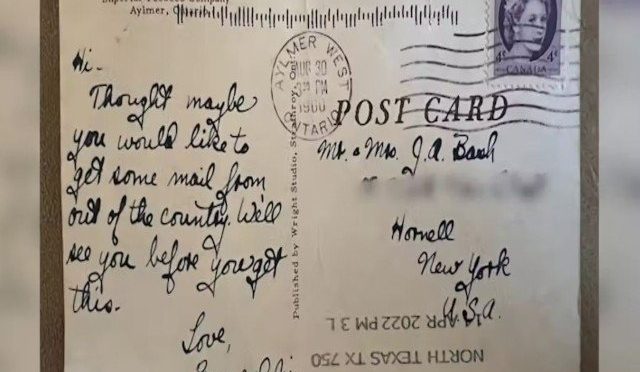 Imperial Tobacco Company
Aylmer, Ontario
Hi-
Thought maybe
you would like to
get some mail from
out of the country. We'll
see you before you get
this.
Love,
Published by Wright Studio, Strathroy, Ont.
AYLMER WEST
30
PM
ONTARIO
4¢ 4¢
CANADA
POST CARD
Mr. & Mrs. J.A. Bach
Hornell
New York
U.S.A.
NORTH TEXAS TX 750
APR 2022 PM 3 L